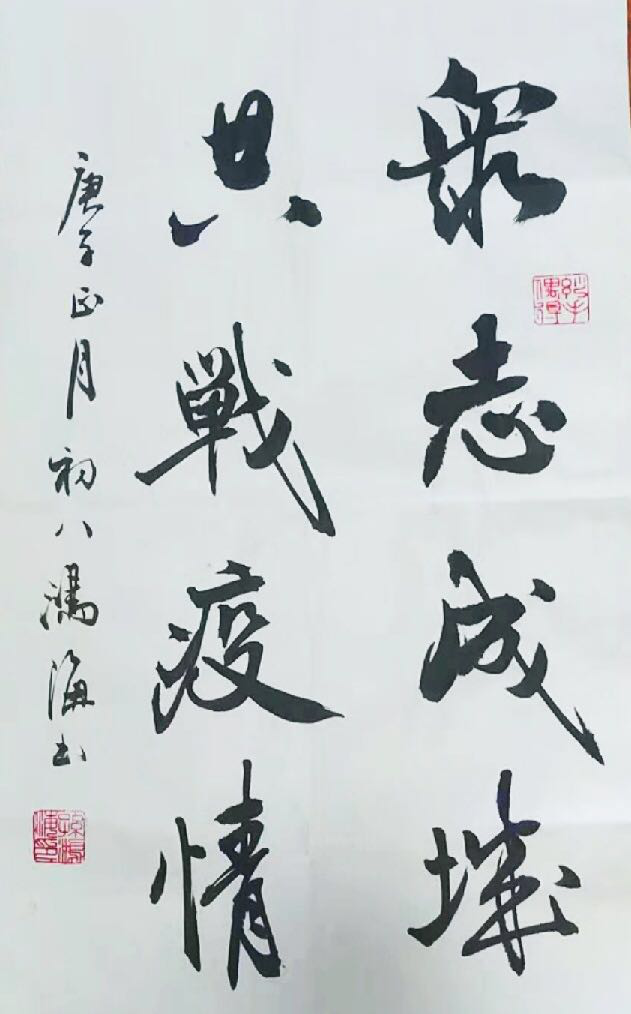 眾志成城
共戰疫情
庚子正月初八鴻海书